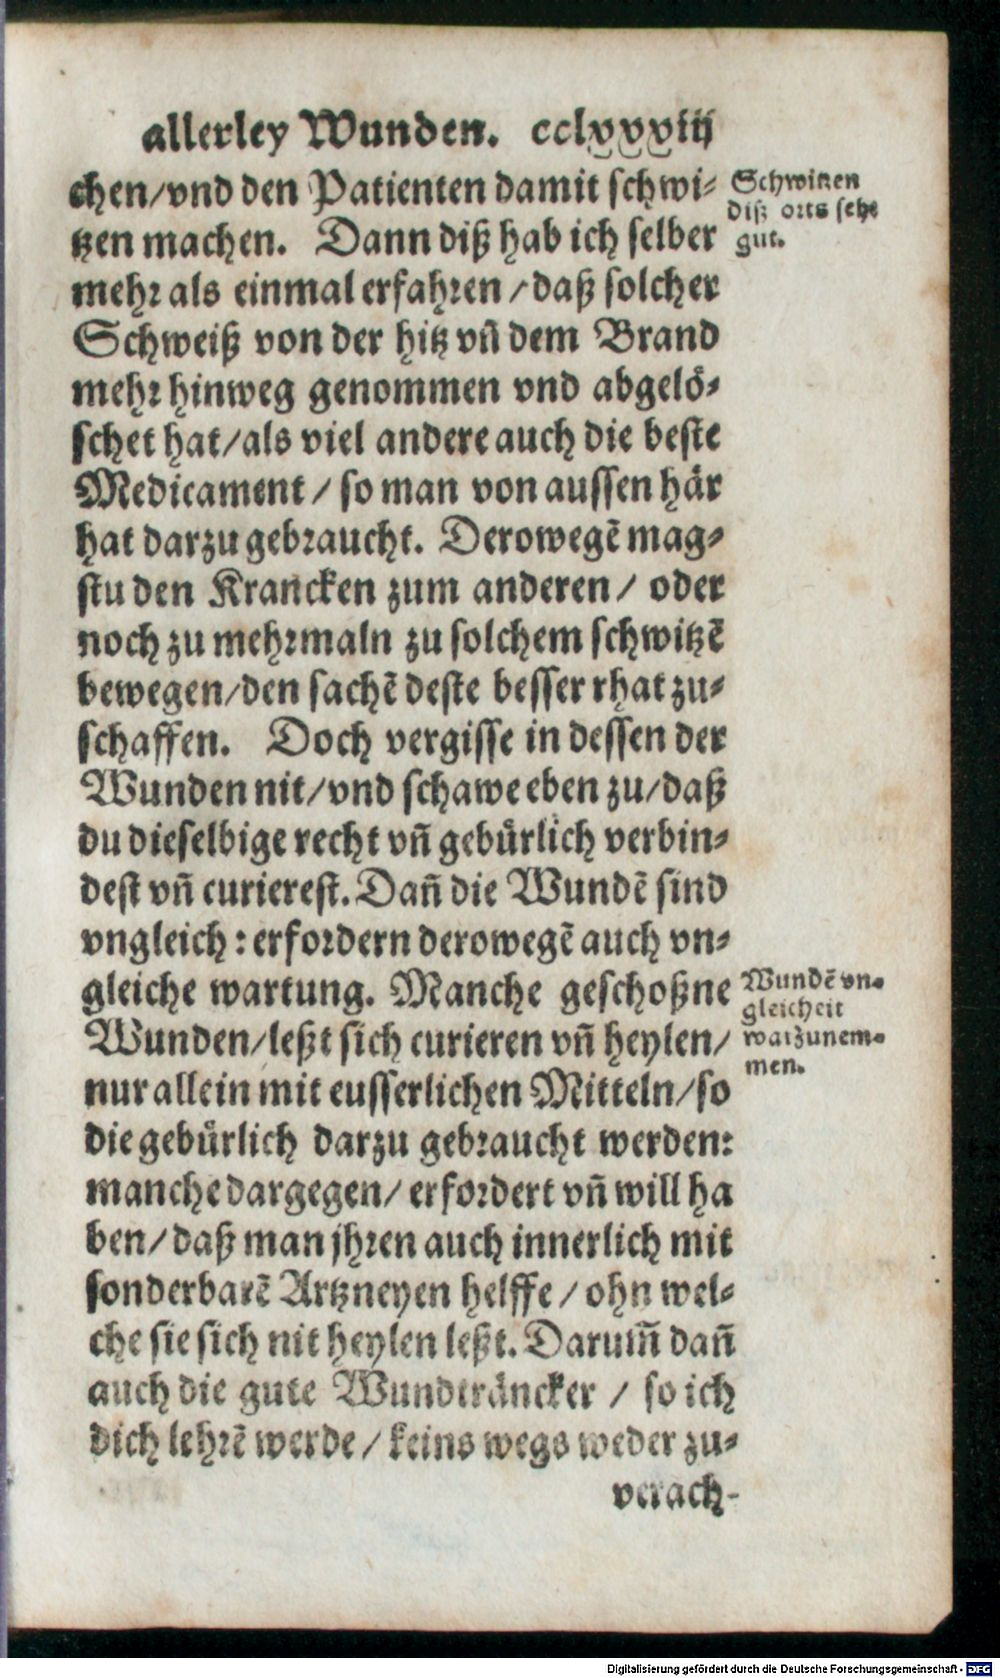 allerley Wunden. cclxxxiij
chen/vnd den Patienten damit schwi-
tzen machen. Dann diß hab ich selber
mehr als einmal erfahren/daß solcher
Schweiß von der hitz vñ dem Brand
mehr hinweg genommen vnd abgelö-
schet hat/als viel andere auch die beste
Medicament/so man von aussen här
hat darzu gebraucht. Derowegẽ mag-
stu den Krancken zum anderen/ oder
noch zu mehrmaln zu solchem schwitzẽ
bewegen/den sachẽ deste besser rhat zu-
schaffen. Doch vergisse in dessen der
Wunden nit/vnd schawe eben zu/daß
du dieselbige recht vñ gebürlich verbin-
dest vñ curierest. Dañ die Wundẽ sind
vngleich: erfordern derowegẽ auch vn-
gleiche wartung. Manche geschoßne
Wunden/leßt sich curieren vñ heylen/
nur allein mit eusserlichen Mitteln/so
die gebürlich darzu gebraucht werden:
manche dargegen/ erfordert vñ will ha
ben/daß man jhren auch innerlich mit
sonderbarẽ Artzneyen helffe/ohn wel-
che sie sich nit heylen leßt. Darum̃ dañ
auch die gute Wundträncker/ so ich
dich lehrẽ werde/keins wegs weder zu-
verach-
Schwitzen
diß orts sehr
gut.
Wundẽ vn-
gleicheit
warzunem-
men.
Digitalisierung gefördert durch die Deutsche Forschungsgemeinschaft - DFG